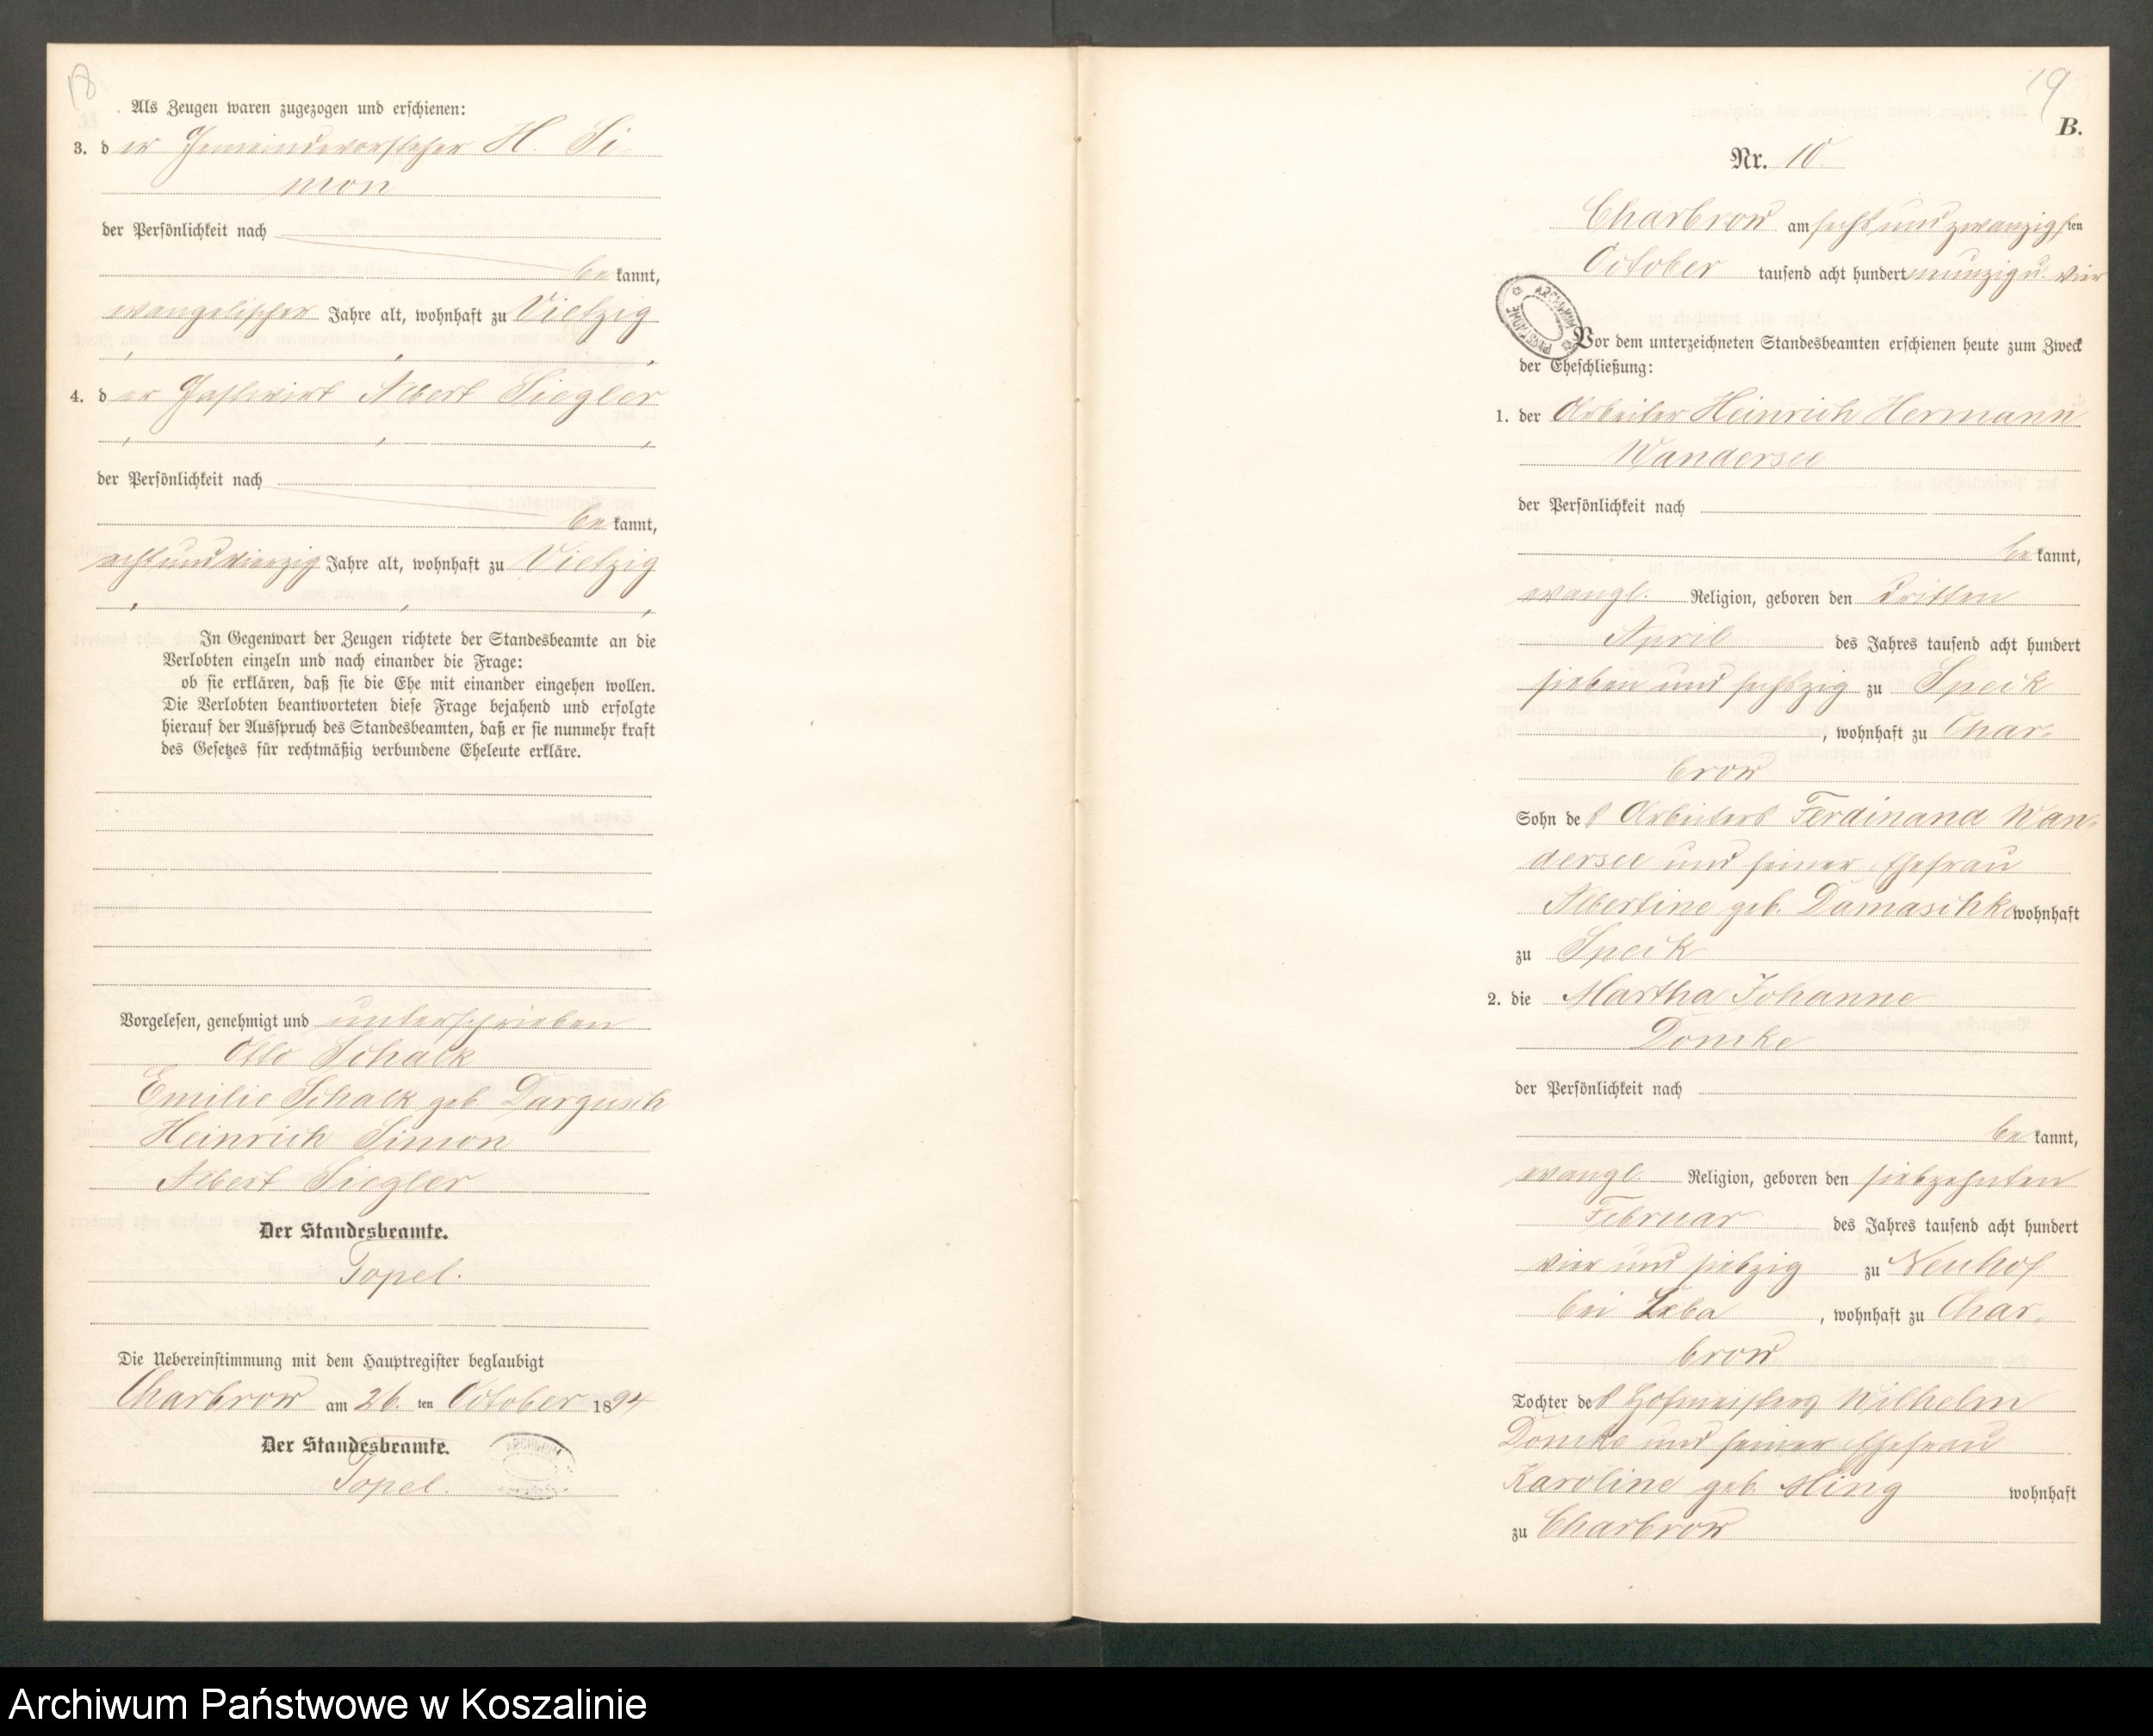 18
Als Zeugen waren zugezogen und erschienen:
3. der Gemeindevorsteher H. Si-
mon
der Persönlichkeit nach
bekannt,
evangelischer Jahre alt, wohnhaft zu Vietzig
4. der Gastwirt Albert Siegler
der Persönlichkeit nach
bekannt,
achtundvierzig Jahre alt, wohnhaft zu Vietzig
In Gegenwart der Zeugen richtete der Standesbeamte an die
Verlobten einzeln und nach einander die Frage:
ob sie erklären, daß sie die Ehe mit einander eingehen wollen.
Die Verlobten beantworteten diese Frage bejahend und erfolgte
hierauf der Ausspruch des Standesbeamten, daß er sie nunmehr kraft
des Gesetzes für rechtmäßig verbundene Eheleute erkläre.
Vorgelesen, genehmigt und unterschrieben
Otto Schalk
Emilie Schalk geb. Dargusch
Heinrich Simon
Albert Siegler
Der Standesbeamte.
Topel.
Die Uebereinstimmung mit dem Hauptregister beglaubigt
Charbrow am 26. ten October 1894
Der Standesbeamte.
Topel.
ARCHIWUM
19
B.
Nr. 10.
Charbrow am sechs und zwanzigsten
October tausend acht hundert neunzig u. vier
ARCHIWUM PAŃSTWOWE
Vor dem unterzeichneten Standesbeamten erschienen heute zum Zweck
der Eheschließung:
1. der Arbeiter Heinrich Hermann
Wandersee
der Persönlichkeit nach
bekannt,
evangl. Religion, geboren den dritten
April des Jahres tausend acht hundert
sieben und sechszig zu Speck
, wohnhaft zu Char-
brow
Sohn des Arbeiters Ferdinand Wan-
dersee und seiner Ehefrau
Albertine geb. Damaschke wohnhaft
zu Speck
2. die Martha Johanne
Domke
der Persönlichkeit nach
bekannt,
evangl. Religion, geboren den siebzehnten
Februar des Jahres tausend acht hundert
vier und siebzig zu Neuhof
bei Leba , wohnhaft zu Char-
brow
Tochter des Hofmeisters Wilhelm
Domke und seiner Ehefrau
Karoline geb. Ming wohnhaft
zu Charbrow
Archiwum Państwowe w Koszalinie